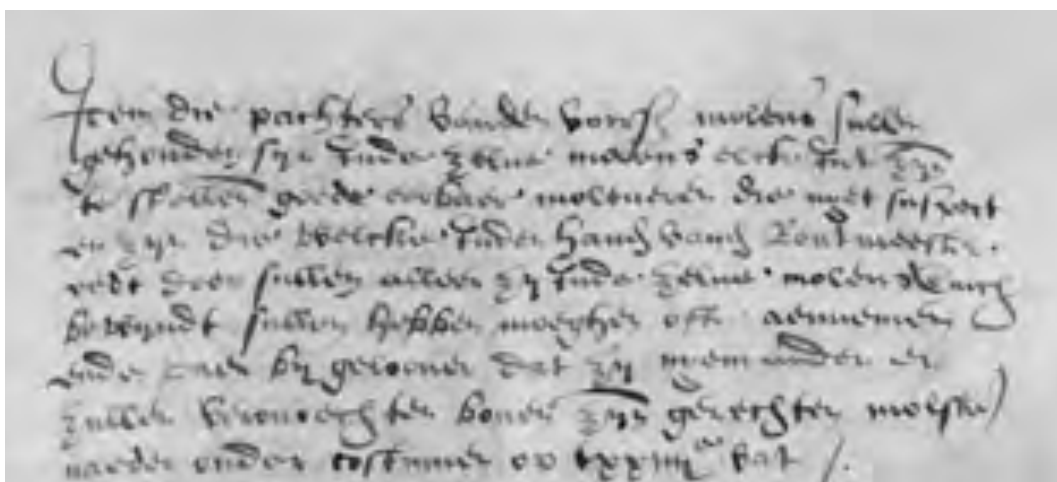 Item die pachters vanden vors. molens sullen
gehouden syn inde zelve molens elck int zyn
te stellen goede eerbaer moleners die niet suspect
en zyn die welcke inder handt vanden Rentmeester
eedt doen sullen alleer zy inde zelve molens
bewyndt sullen hebben moeghen oft aennemen
ende daer by geloven dat zy niemanden en
zullen vervnrechten boven zyn gerechten molster
naeder ouder costumen op xxiiii vat